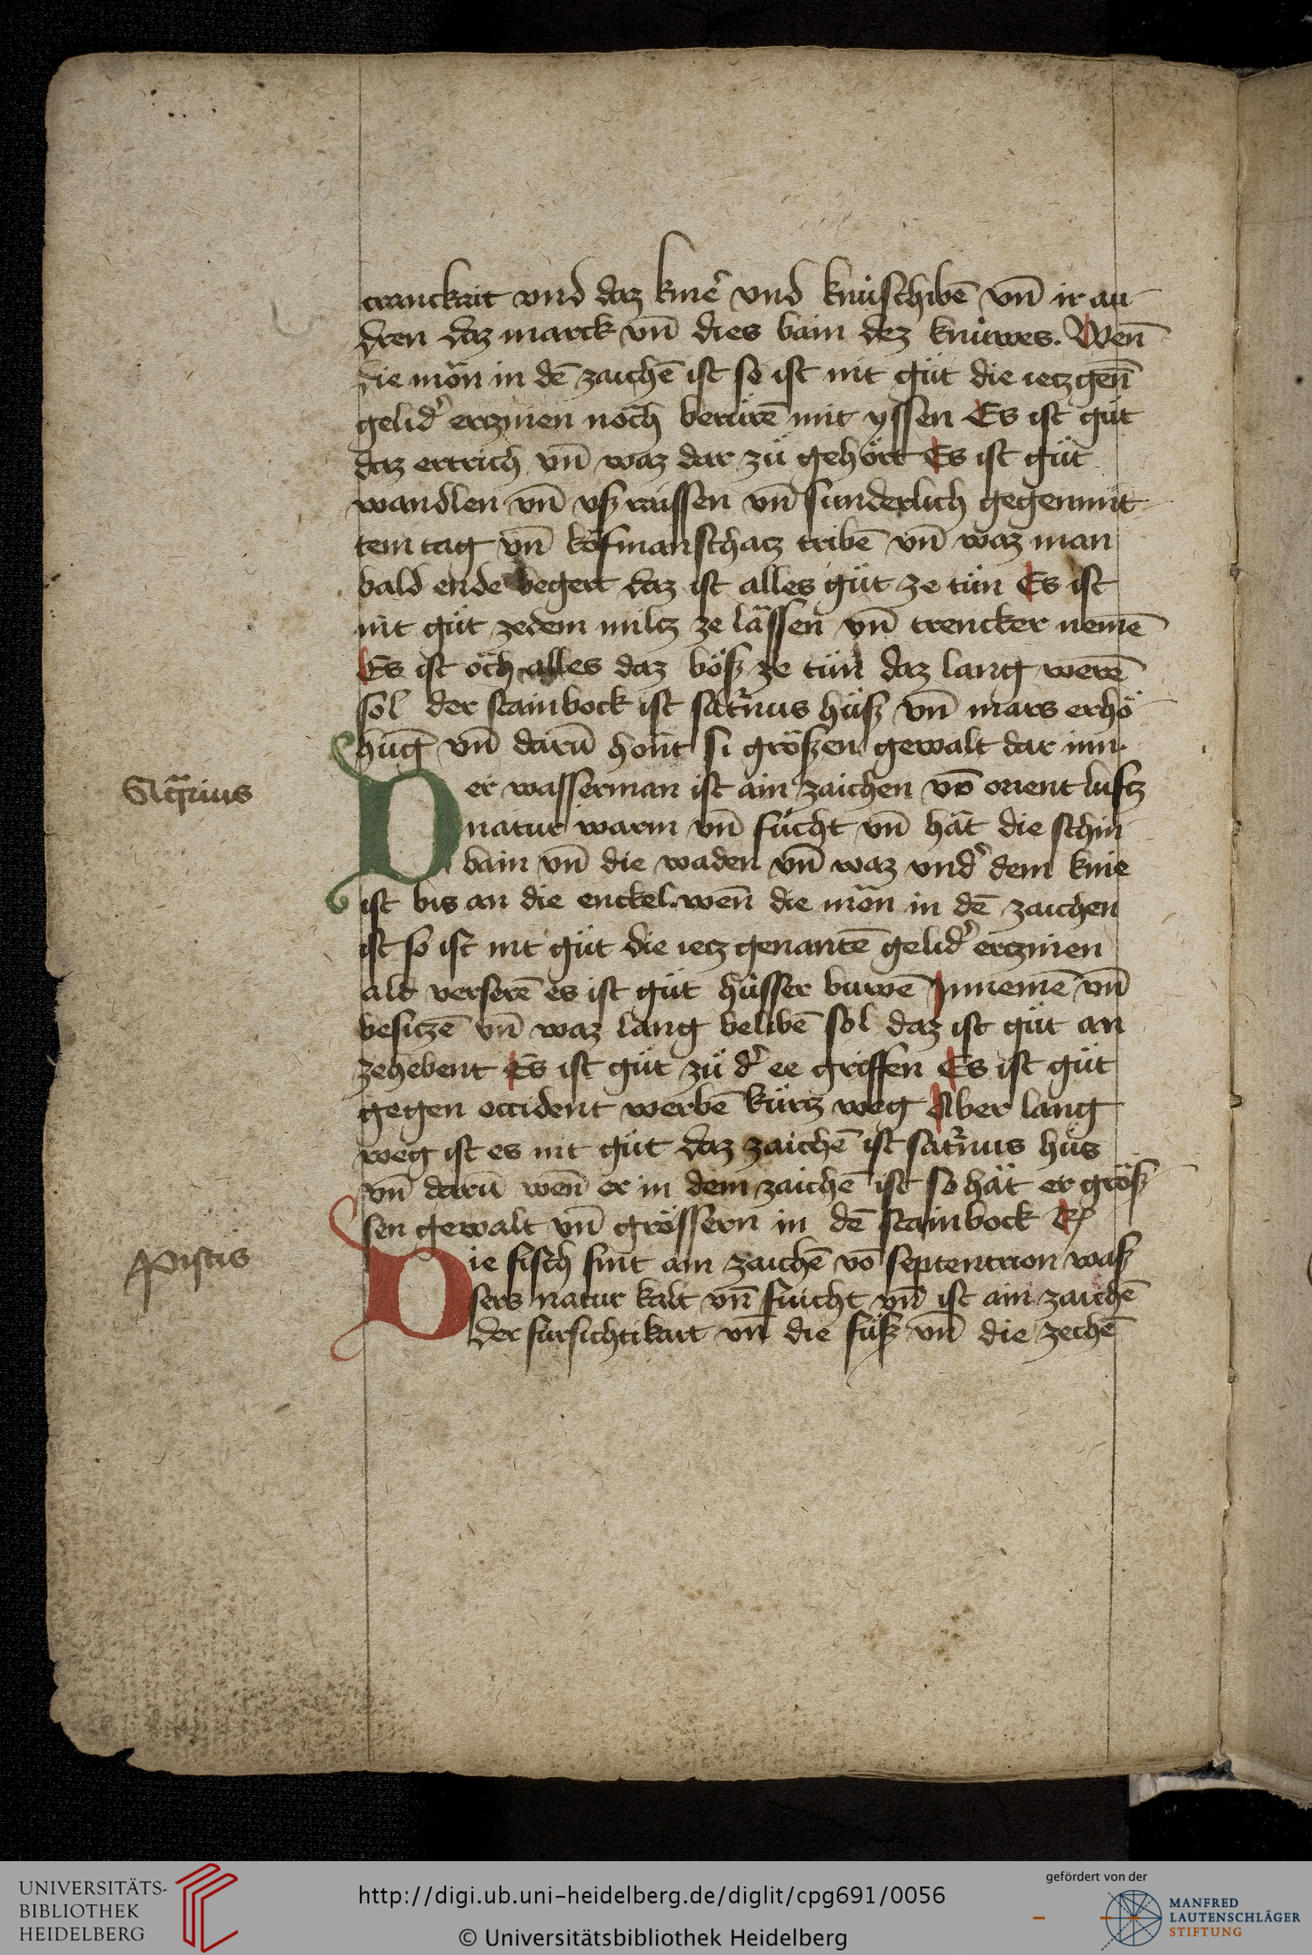 cranckait vnd daz knie᷑ vnd knüschibē vn̄ ir au
dren daz marck vn̄ dies bain dez knüwes. Wen̄
die mǎn in dē zaichē ist so ist nit gůt die ietz gen̄
gelid᷑ erczinen noch berůrē mit yssen Es ist gůt
daz ertrich vn̄ waz dar zů gehört Es ist gůt
wandlen vn̄ vß raissen vn̄ sunderlich gegen mit
tem tag vn̄ kǒfmanschatz tribē vn̄ waz man
bald ende begert daz ist alles gůt ze tůn Es ist
nit gůt ze dem miltz ze lǎssen vn̄ trencker nemē
Es ist ǒch alles daz böß ze tůn daz lang werē
sol der stainbock ist satrnus huß vn̄ mars erhö
hūg vn̄ darū hont si großen gewalt dar inn.
Aq̄rius
Der wasserman ist ain zaichen vō orient luftz
natur warm vn̄ fücht vn̄ hǎt die schin
bain vn̄ die waden vn̄ waz vnd᷑ dem knie
ist bis an die enckel. wen̄ die mǎn in dē zaichen
ist so ist nit gůt die ietz genantē gelid᷑ erczinen
ald verserē es ist gůt hüsser buwē Innemē vn̄
besitzē vn̄ waz lang belibē sol daz ist gůt an
zehebent Es ist gůt zů d᷑ ee griffen Es ist gůt
gegen occident werbē kürtz weg Aber lang
weg ist es nit gůt daz zaichē ist satrnus hus
vn̄ darū wen̄ er in dem zaichē ist so hǎt er gröſ
sen gewalt vn̄ grössern in dē stainbock Rͨ
Pistis
Die fisch sint ain zaichē vō septentrion waſ
sers natur kalt vn̄ fuicht vn̄ ist ain zaichē
der fürsichtikait vn̄ die füß vn̄ die zechē
UNIVERSITÄTS-
BIBLIOTHEK
HEIDELBERG
http://digi.ub.uni-heidelberg.de/diglit/cpg691/0056
© Universitätsbibliothek Heidelberg
gefördert von der
MANFRED
LAUTENSCHLÄGER
STIFTUNG